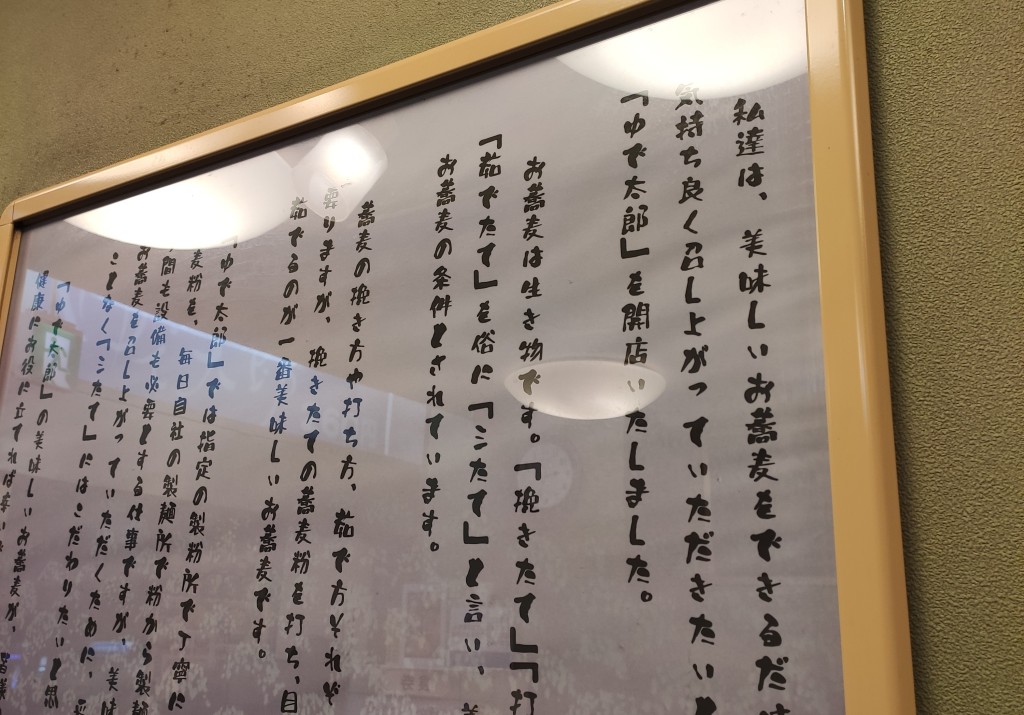 私達は、美味しいお蕎麦をできるだけ
気持ち良く召し上がっていただきたいと
「ゆで太郎」を開店いたしました。
お蕎麦は生き物です。「挽きたて」「打
「茹でたて」を俗に「三たて」と言い、美
お蕎麦の条件とされています。
蕎麦の挽き方や打ち方、茹で方それぞ
要りますが、挽きたての蕎麦粉を打ち、目
茹でるのが一番美味しいお蕎麦です。
「ゆで太郎」では指定の製粉所で丁寧に
麦粉を、毎日自社の製麺所で粉から製麺
間も設備も必要とする仕事ですが、美味
お蕎麦を召し上がっていただくために、
ことなく「三たて」にはこだわりたいと思
「ゆで太郎」の美味しいお蕎麦が、皆様
健康にお役に立てれば幸いで